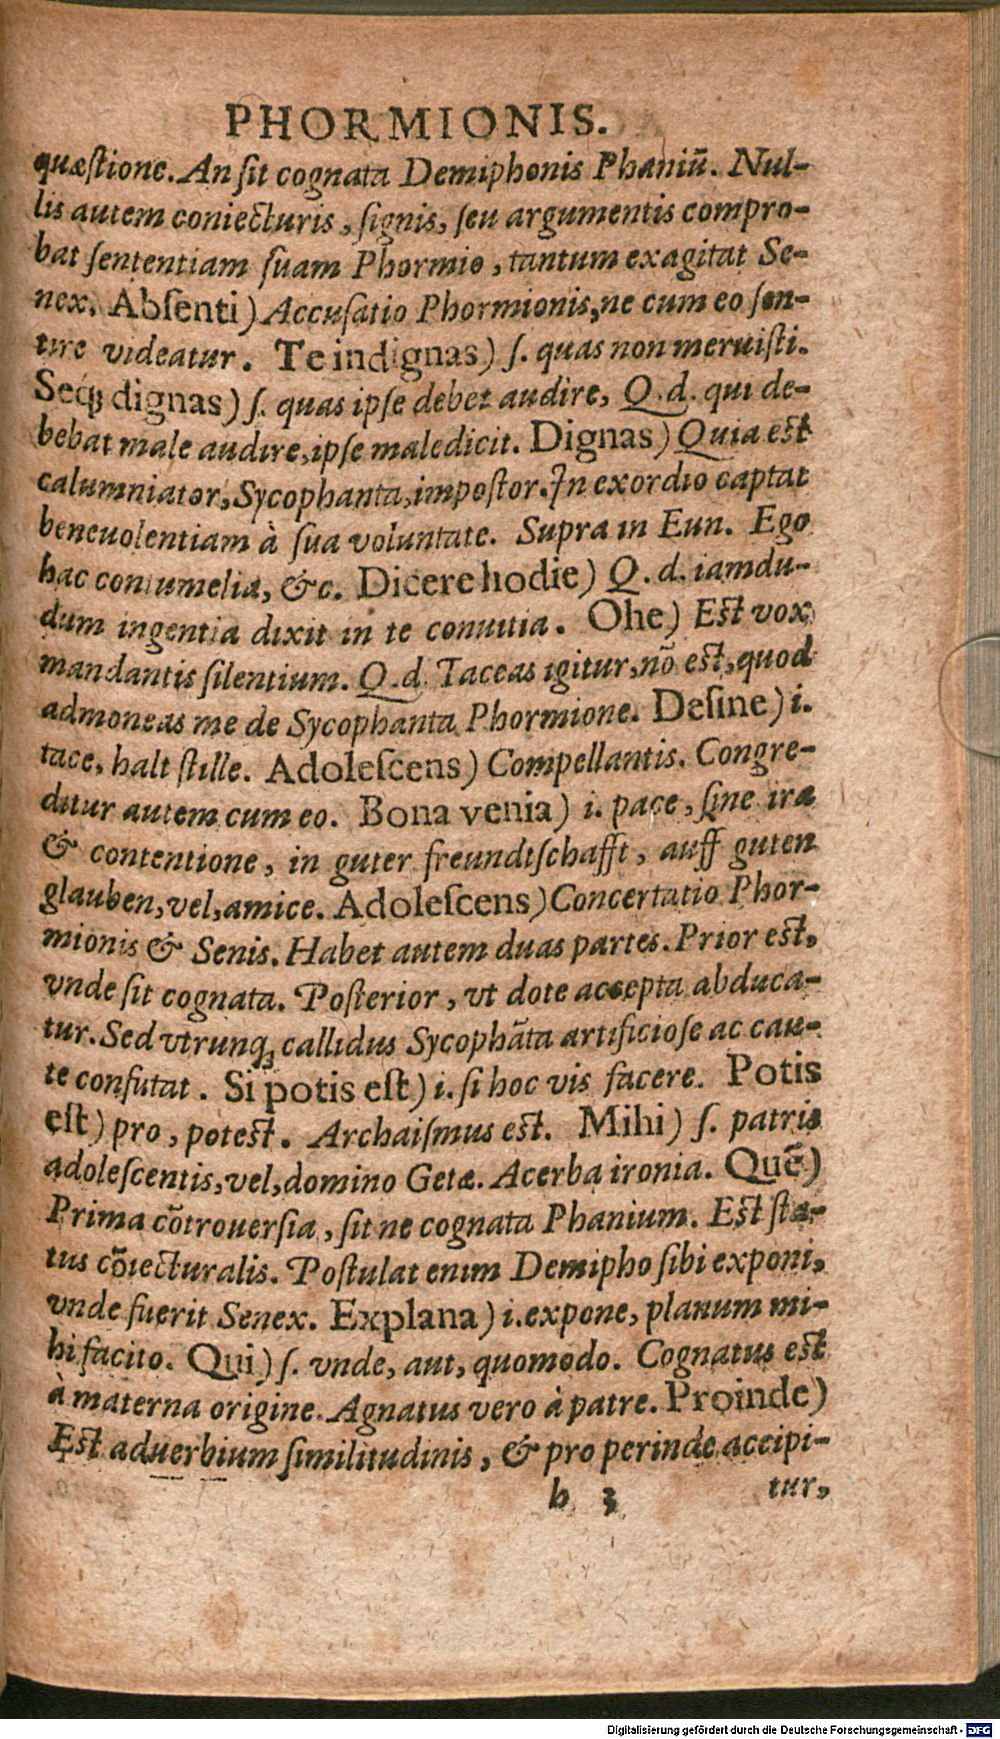 PHORMIONIS.
quæſtione. An ſit cognata Demiphonis Phaniū. Nul-
lis autem coniecturis, ſignis, ſeu argumentis compro-
bat ſententiam ſuam Phormio, tantum exagitat Se-
nex. Abſenti) Accuſatio Phormionis, ne cum eo ſen-
tire videatur. Te indignas) ſ. quas non meruiſti.
Seq́ꝫ dignas) ſ. quas ipſe debet audire, Q.d. qui de-
bebat male audire, ipſe maledicit. Dignas) Quia est
calumniator, Sycophanta, impoſtor. In exordio captat
beneuolentiam à ſua voluntate. Supra in Eun. Ego
hac contumelia, &c. Dicere hodie) Q.d. iamdu-
dum ingentia dixit in te conuitia. Ohe) Est vox
mandantis ſilentium. Q.d. Taceas igitur, nō est, quod
admoneas me de Sycophanta Phormione. Deſine) i.
tace, halt ſtille. Adoleſcens) Compellantis. Congre-
ditur autem cum eo. Bona venia) i. pace, ſine ira
& contentione, in guter freundtſchafft, auff guten
glauben, vel, amice. Adoleſcens) Concertatio Phor-
mionis & Senis. Habet autem duas partes. Prior est,
vnde ſit cognata. Poſterior, vt dote accepta abduca-
tur. Sed vtrunqꝫ callidus Sycophāta artificioſe ac cau-
te confutat. Si potis eſt) i. ſi hoc vis facere. Potis
eſt) pro, potest. Archaiſmus est. Mihi) ſ. patris
adoleſcentis, vel, domino Getæ. Acerba ironia. Quē)
Prima cōtrouerſia, ſit ne cognata Phanium. Est ſta-
tus cōiecturalis. Poſtulat enim Demipho ſibi exponi,
vnde fuerit Senex. Explana) i. expone, planum mi-
hi facito. Qui) ſ. vnde, aut, quomodo. Cognatus est
à materna origine. Agnatus vero à patre. Proinde)
Est aduerbium ſimilitudinis, & pro perinde accipi-
b 3 tur,
Digitalisierung gefördert durch die Deutsche Forschungsgemeinschaft - DFG